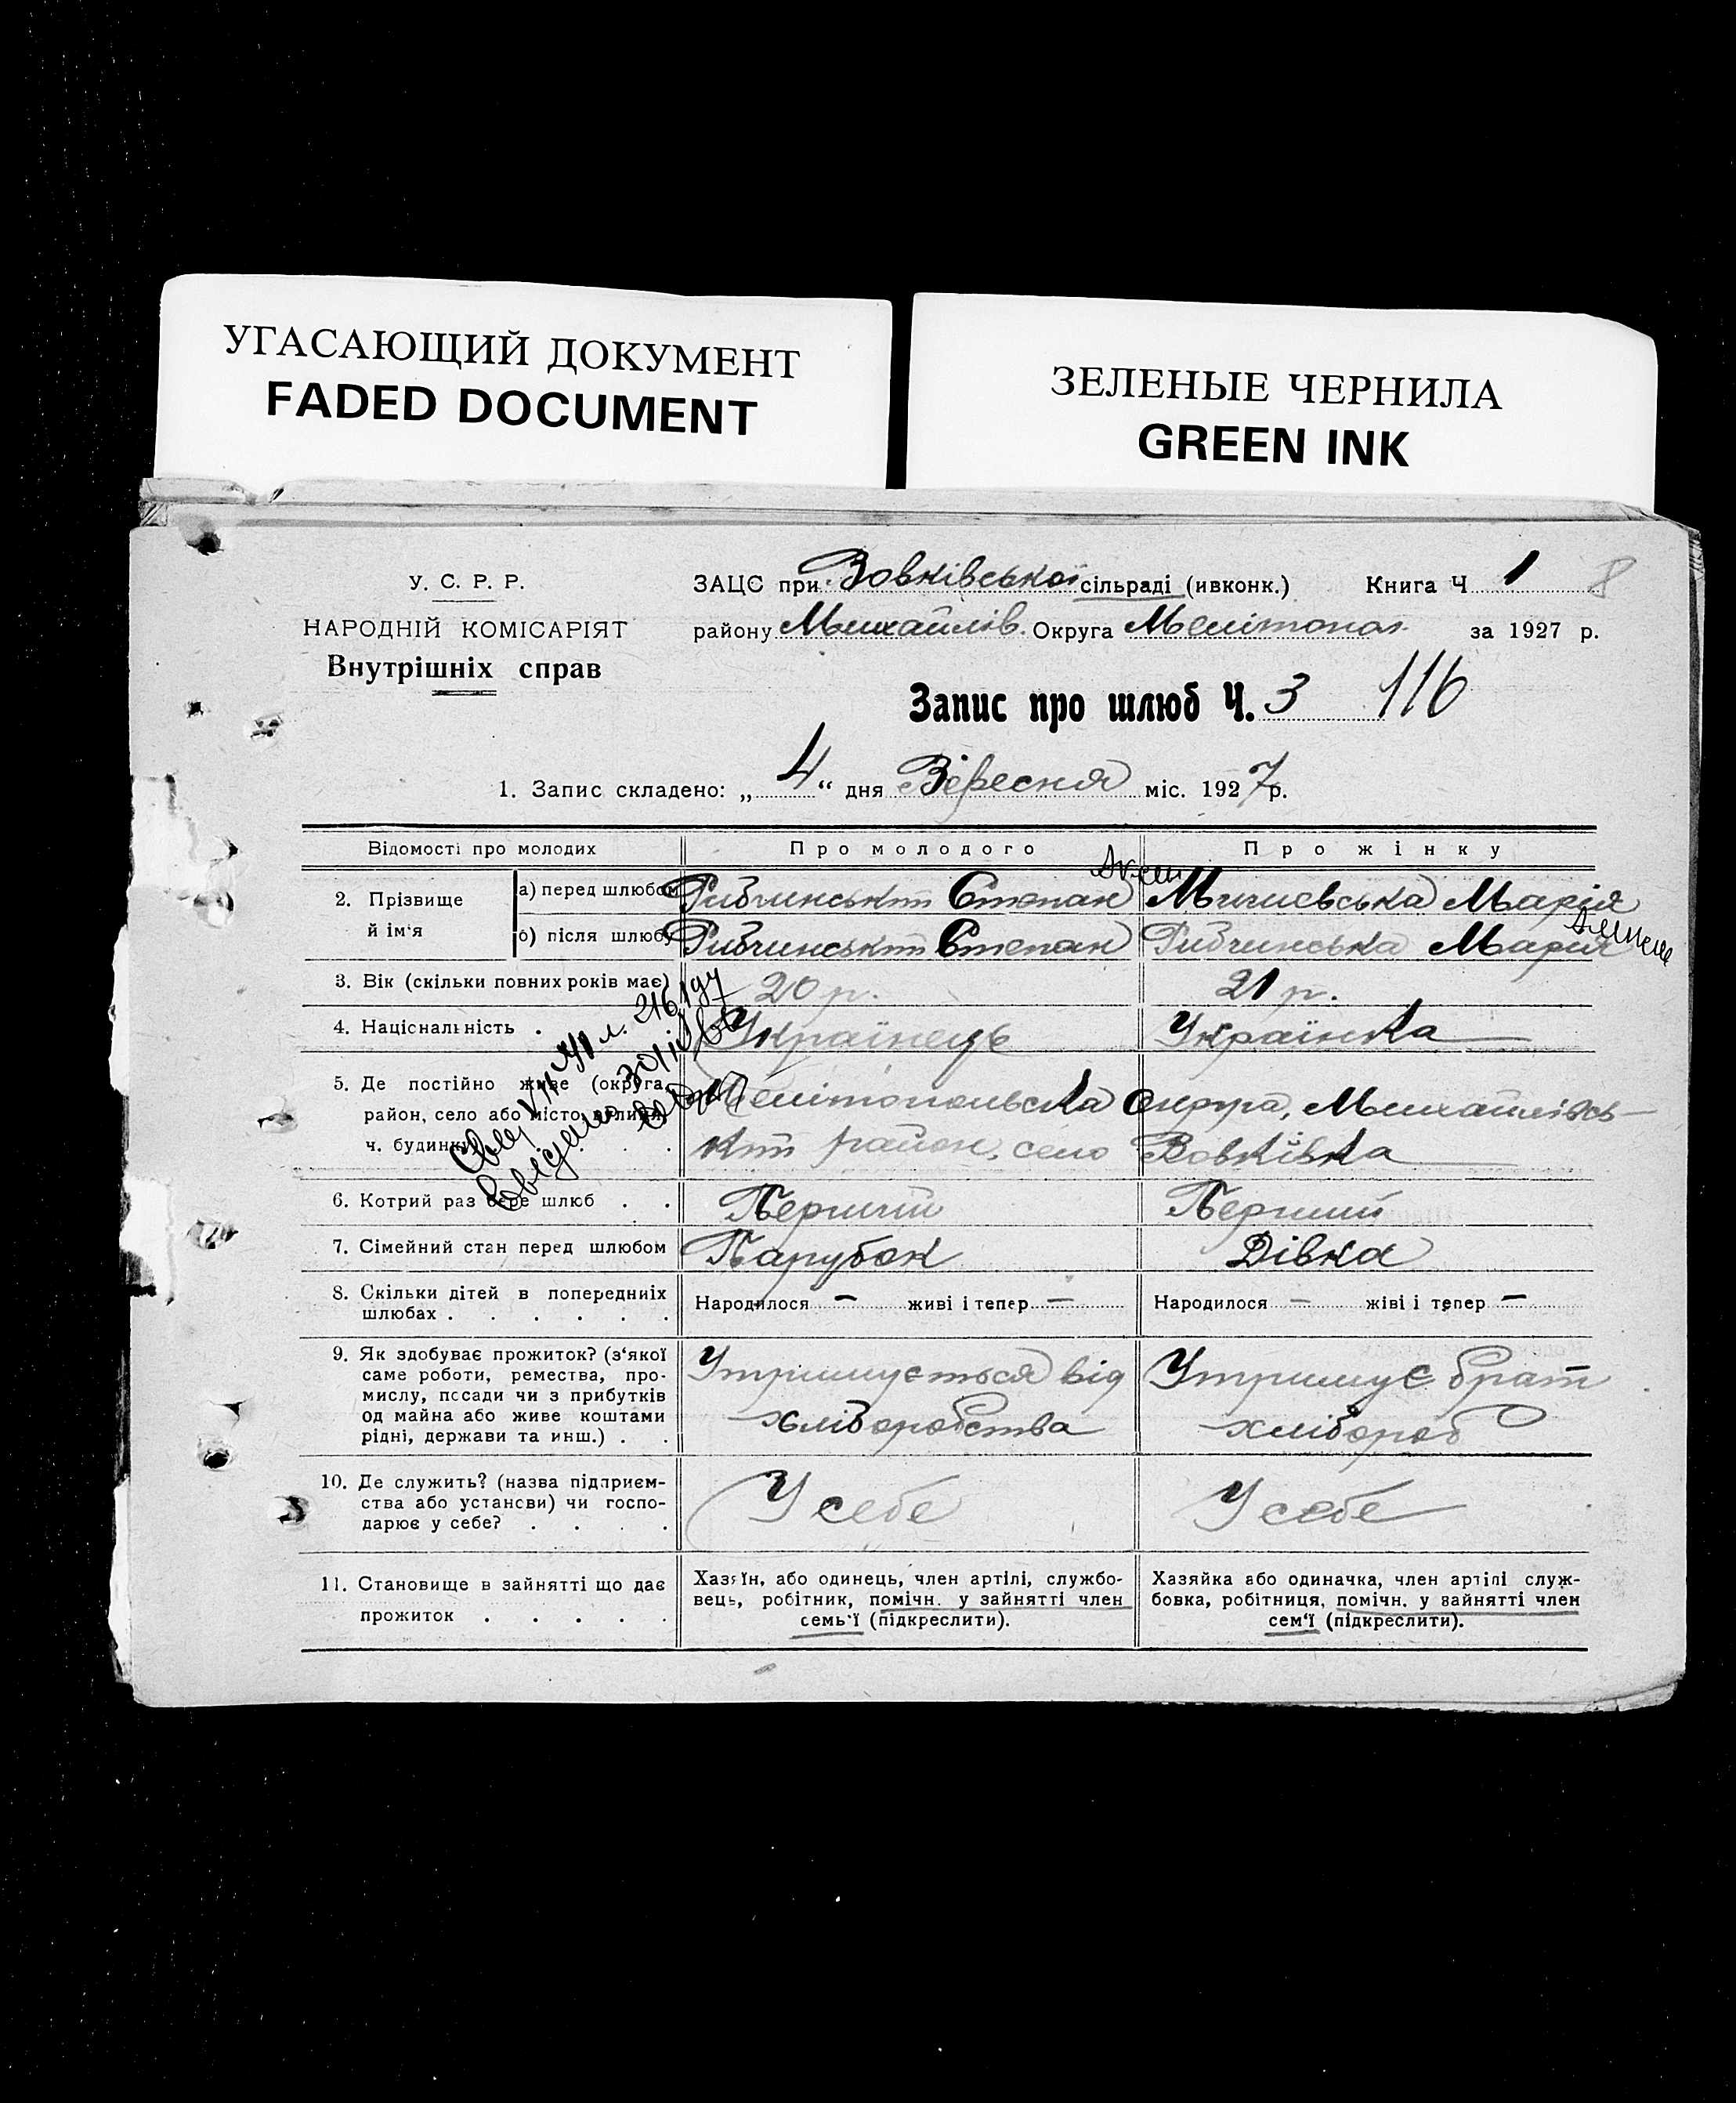 УГАСАЮЩИЙ ДОКУМЕНТ
FADED DOCUMENT
ЗЕЛЕНЫЕ ЧЕРНИЛА
GREEN INK
У. С. Р. Р.
НАРОДНІЙ КОМІСАРІЯТ
Внутрішніх справ
ЗАЦС при Вовківської сільраді (ивконк.) Книга Ч 1 8
району Михайлів. Округа Мелітопол. за 1927 р.
Запис про шлюб Ч. 3 116
1. Запис складено: „ 4 “ дня Вересня міс. 1927 р.
Відомості про молодих Про молодого Про жінку
2. Прізвище й ім‘я
а) перед шлюбом Рибчинський Степан Марія
б) після шлюбу Рибчинський Степан Рибчинська Мария
3. Вік (скільки повних років має) 20 р. 21 р.
4. Національність . Українець Українка
5. Де постійно живе (округа, Мелітопольська Округа, Михайлівсь-
район, село або місто, вулиця, кий район, село Вовківка
ч. будинку
6. Котрий раз бере шлюб . . Перший Перший
7. Сімейний стан перед шлюбом Парубок Дівка
8. Скільки дітей в попередниіх Народилося — живі і тепер — Народилося — жіві і тепер —
шлюбах . . . . . .
9. Як здобуває прожиток? (з‘якої Утримується від Утримує брат
саме роботи, ремества, про- хліборобства хлібороб
мислу, посади чи з прибутків
од майна або живе коштами
рідні, держави та инш.) . .
10. Де служить? (назва підприєм- У себе У себе
ства або установи) чи госпо-
дарює у себе? . . . .
11. Становище в зайнятті що дає
прожиток . . . . .
Хазяїн, або одинець, член артілі, службо-
вець, робітник, помічн. у зайнятті член
семь‘ї (підкреслити).
Хазяйка або одиначка, член артілі служ-
бовка, робітниця, помічн. у зайнятті член
сем‘ї (підкреслити).